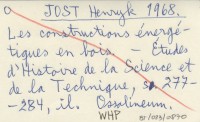 JOST Henryk 1968.
Les constructions énergé-
tiques en bois – Études
d'Histoire de la Science et
de la Technique, s. 277-
-284, il. Ossolineum.
WHP